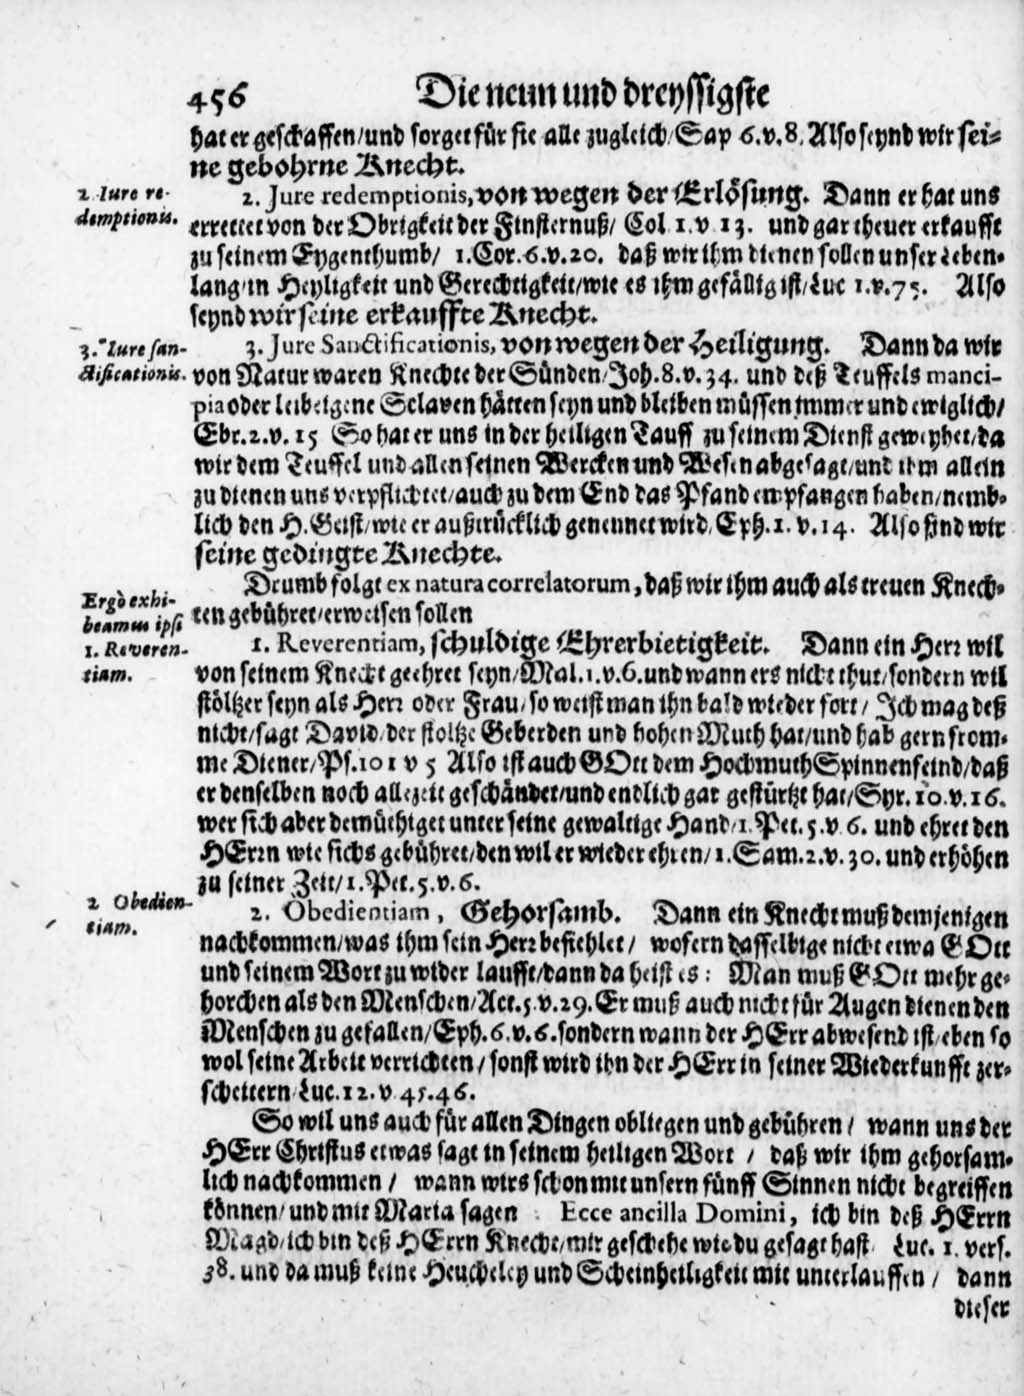 456 Die neun und dreyssigste
hat er geschaffen/und sorget für sie alle zugleich/Sap 6.v.8. Also seynd wir sei=
ne gebohrne Knecht.
2. Iure re-
demptionis.
2. Jure redemptionis, von wegen der Erlösung. Dann er hat uns
errettet von der Obrigkeit der Finsternuß/ Col 1.v 13. und gar theuer erkaufft
zu seinem Eygenthumb/ 1.Cor.6.v.20. daß wir ihm dienen sollen unser Leben=
lang/in Heyligkeit und Gerechtigkeit/wie es ihm gefällig ist/Luc 1.v.75. Also
seynd wir seine erkauffte Knecht.
3. Iure san-
ctificationis.
3. Jure Sanctificationis, von wegen der Heiligung. Dann da wir
von Natur waren Knechte der Sünden/Joh.8.v.34. und deß Teuffels manci-
pia oder leibeigene Sclaven hätten seyn und bleiben müssen immer und ewiglich/
Ebr.2.v.15 So hat er uns in der heiligen Tauff zu seinem Dienst geweyhet/da
wir dem Teuffel und allen seinen Wercken und Wesen abgesagt/und ihm allein
zu dienen uns verpflichtet/auch zu dem End das Pfand empfangen haben/nemb=
lich den H.Geist/wie er außtrücklich genennet wird/Eph.1.v.14. Also sind wir
seine gedingte Knechte.
Drumb folgt ex natura correlatorum, daß wir ihm auch als treuen Knech=
ten gebühret/erweisen sollen
Ergò exhi-
beamus ipsi
1. Reveren-
tiam.
1. Reverentiam, schuldige Ehrerbietigkeit. Dann ein Herr wil
von seinem Knecht geehret seyn/Mal.1.v.6.und wann ers nicht thut/sondern wil
stöltzer seyn als Herr oder Frau/so weist man ihn bald wieder fort/ Ich mag deß
nicht/sagt David/der stoltze Geberden und hohen Muth hat/und hab gern from=
me Diener/Ps.101 v 5 Also ist auch GOtt dem Hochmuth Spinnenfeind/daß
er denselben noch allezeit geschändet/und endlich gar gestürtzt hat/Syr.10.v.16.
wer sich aber demüthiget unter seine gewaltige Hand/1.Pet.5.v.6. und ehret den
HErrn wie sichs gebühret/den wil er wieder ehren/1.Sam.2.v.30. und erhöhen
zu seiner Zeit/1.Pet.5.v.6.
2 Obedien-
tiam.
2. Obedientiam, Gehorsamb. Dann ein Knecht muß demjenigen
nachkommen/was ihm sein Herr befiehlet/ wofern dasselbige nicht etwa GOtt
und seinem Wort zu wider laufft/dann da heist es: Man muß GOtt mehr ge=
horchen als den Menschen/Act.5.v.29. Er muß auch nicht für Augen dienen den
Menschen zu gefallen/Eph.6.v.6.sondern wann der HErr abwesend ist/eben so
wol seine Arbeit verrichten/sonst wird ihn der HErr in seiner Wiederkunfft zer=
scheitern/Luc.12.v 45.46.
So wil uns auch für allen Dingen obliegen und gebühren/ wann uns der
HErr Christus etwas sagt in seinem heiligen Wort/ daß wir ihm gehorsam=
lich nachkommen/ wann wirs schon mit unsern fünff Sinnen nicht begreiffen
können/und mit Maria sagen: Ecce ancilla Domini, ich bin deß HErrn
Magd/ich bin deß HErrn Knecht/mir geschehe wie du gesagt hast. Luc. 1. vers.
38. und da muß keine Heucheley und Scheinheiligkeit mit unterlauffen/ dann
dieser